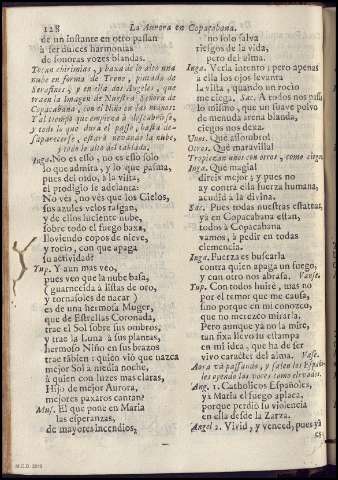 128
La Aurora en Copacabana.
de un instante en otro passan
à ser dulces harmonias
de sonoras vozes blandas.
Tocan chirimias, y baxa de lo alto una
nube en forma de Trono, pintada de
Serafines, y en ella dos Angeles, que
traen la Imagen de Nuestra Señora de
Copacabana, con el Niño en las manos:
Y al tiempo que empieça à descubrirse,
y todo lo que dura el passo, hasta de-
saparecerse, estarà nevando la nube,
y todo lo alto del tablado.
Inga. No es esso, no es esso solo
lo que admira, y lo que pasma,
pues del oido, à la vista,
el prodigio se adelanta:
No ves, no vès que los Cielos,
sus azules velos rasgan,
y de ellos luciente nube,
sobre todo el fuego baxa,
lloviendo copos de nieve,
y rocio, con que apaga
su actividad?
Yup. Y aun mas veo,
pues veo que la nube basa,
(guarnecida à listas de oro,
y tornasoles de nacar)
es de una hermosa Muger,
que de Estrellas Coronada,
trae el Sol sobre sus ombros,
y trae la Luna à sus plantas,
hermoso Niño en sus brazos
trae tãbien: quièn viò que nazca
mejor Sol à media noche,
à quien con luzes mas claras,
Hijo de mejor Aurora,
mejores paxaros cantan?
Mus. El que pone en Maria
las esperanzas,
de mayores incendios,
no solo salva
riesgos de la vida,
pero del alma.
Inga. Verla intento; pero apenas
a ella los ojos levanta
la vista, quando un rocio
me ciega. Sac. A todos nos passa
lo mismo, que un suave polvo
de menuda arena blanda,
ciegos nos dexa.
Unos. Què assombro!
Otros. Què maravilla!
Tropiezan unos con otros, como ciegos
Inga. Què magia!
direis mejor; y pues no
ay contra ella fuerza humana,
acudid à la divina.
Sac. Pues todas nuestras estatuas,
yà en Copacabana estan,
todos à Copacabana
vamos, à pedir en todas
clemencia.
Inga. Fuerza es buscarla
contra quien apaga un fuego,
y con otro nos abrasa. Vanse.
Yup. Con todos huirè, mas no
por el temor que me causa,
sino porque en mi conozco,
que no merezco mirarla.
Pero aunque yà no la mire,
tan fixa llevo su estampa
en mi idea, que ha de ser
vivo caracter del alma. Vase.
Aora và passando, y salen los Españo-
les oyendo las vozes como elevados.
Ang. 1. Catholicos Españoles,
yà Maria el fuego aplaca,
porque perdiò su violencia
en ella desde la Zarza.
Angel 2. Vivid, y venced, pues yà
es-